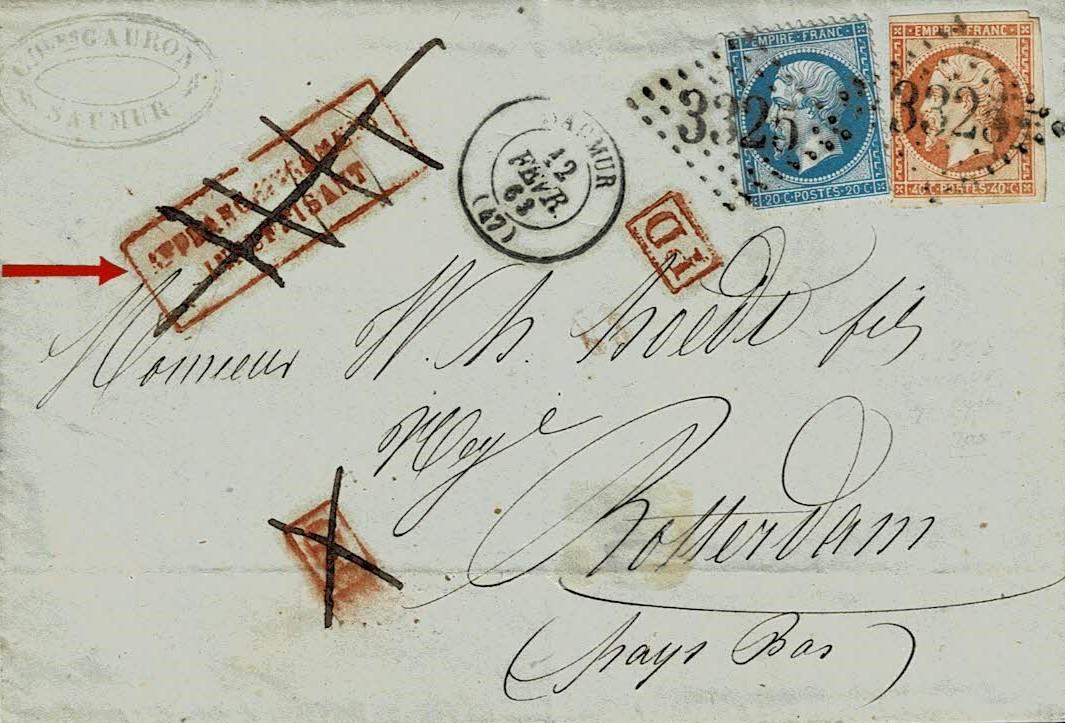 CH.LES GAURON
SAUMUR
AFFRANCHISSEMENT
INSUFFISANT
SAUMUR
12
FÉVR
63
(47)
EMPIRE FRANC
3325
20 C POSTES 20 C
EMPIRE FRANC
3323
40 C POSTES 40 C
PD
Monsieur W. h. hoedt fils
Neg.t
Rotterdam
(pays Bas)